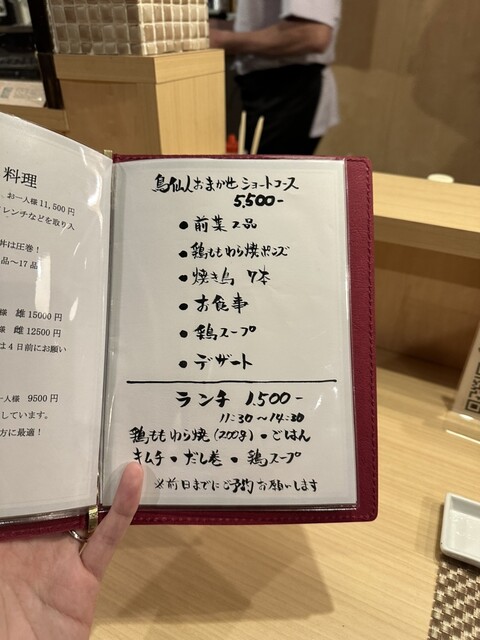 料理
お一人様 11,500円
レンチなどを取り入
丼は圧巻！
品～17品
様 雄 15000円
様 雌 12500円
は4日前にお願い
一人様 9500円
しています。
方に最適！
鳥仙人おまかせショートコース
5,500-
●前菜2品
●鶏ももわら焼ポンズ
●焼き鳥 7本
●お食事
●鶏スープ
●デザート
ランチ 1,500-
11:30～14:30
鶏ももわら焼(200g)・ごはん
キムチ・だし巻・鶏スープ
※前日までにご予約お願いします